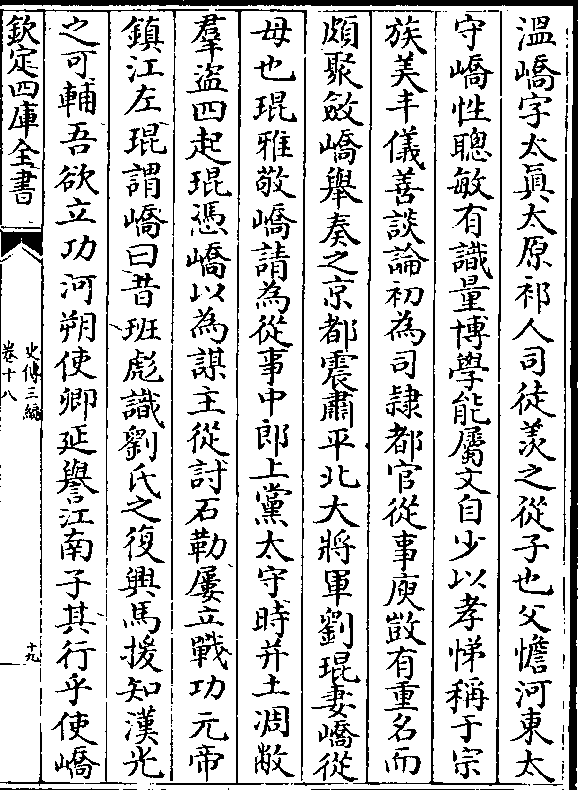 溫嶠字太眞太原祁人司徒羡之從子也父憺河東太
守嶠性聰敏有識量博學能屬文自少以孝悌稱于宗
族美丰儀善談論初為司隷都官從事庾敳有重名而
頗聚斂嶠舉奏之京都震肅平北大將軍劉琨妻嶠從
母也琨雅敬嶠請為從事中郎上黨太守時并土凋敝
羣盜四起琨憑嶠以為謀主從討石勒屢立戰功元帝
鎮江左琨謂嶠曰昔班彪識劉氏之復興馬援知漢光
之可輔吾欲立功河朔使卿延譽江南子其行乎使嶠
欽定四庫全書
史傳三編
卷十八
十九